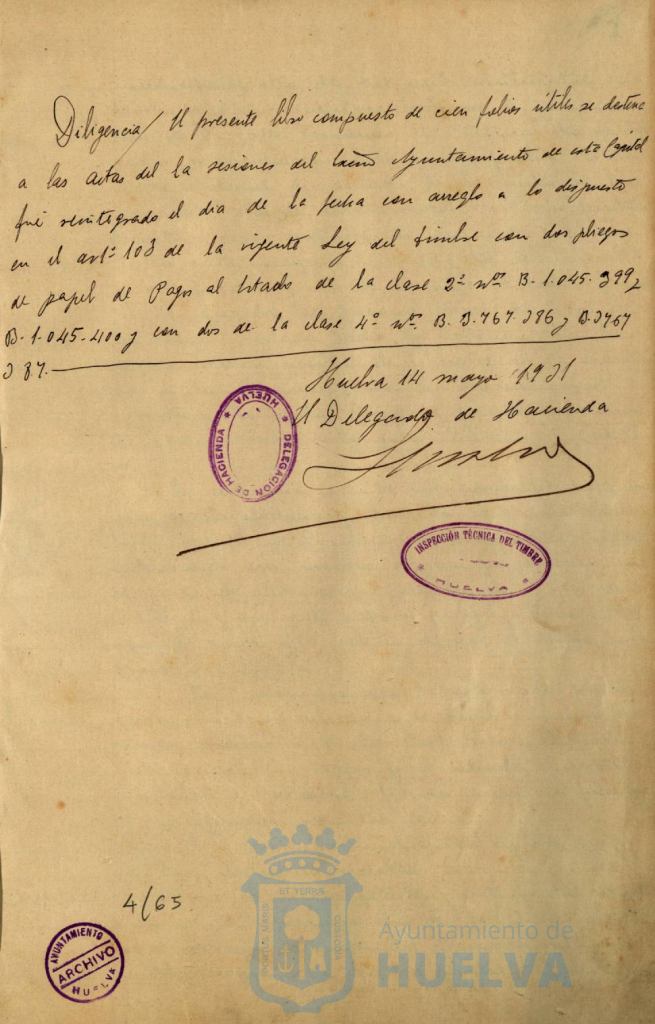 Diligencia/ El presente libro compuesto de cien folios útiles se destina
a las actas del la sesiones del Excmo Ayuntamiento de esta Capital
fué reintegrado el dia de la fecha con arreglo a lo dispuesto
en el artº 103 de la vigente Ley del timbre con dos pliegos
de papel de Pagos al Estado de la clase 2ª nºs B.1.045.399 y
B.1.045.400 y con dos de la clase 4ª nºs B.3.767.386 y B.3767
387.
Huelva 14 mayo 1931
El Delegado de Hacienda
DELEGACION DE HACIENDA
* HUELVA *
INSPECCIÓN TÉCNICA DEL TIMBRE
* HUELVA *
4/65
AYUNTAMIENTO
ARCHIVO
* HUELVA *
ET TERRA
PORTUS MARIS
CUSTODIA
Ayuntamiento de
HUELVA